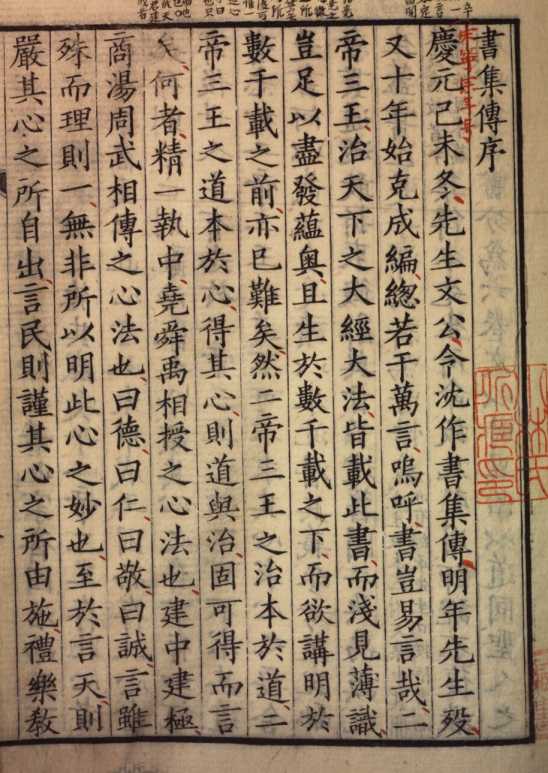 書集傳序
慶元己未冬先生文公令沈作書集傳明年先生歿
又十年始克成編緫若干萬言嗚呼書豈易言哉二
帝三王治天下之大經大法皆載此書而淺見薄識
豈足以盡發蘊奥且生於數千載之下而欲講明於
數千載之前亦已難矣然二帝三王之治本於道二
帝三王之道本於心得其心則道與治固可得而言
矣何者精一執中堯舜禹相授之心法也建中建極
商湯周武相傳之心法也曰德曰仁曰敬曰誠言雖
殊而理則一無非所以明此心之妙也至於言天則
嚴其心之所自出言民則謹其心之所由施禮樂教